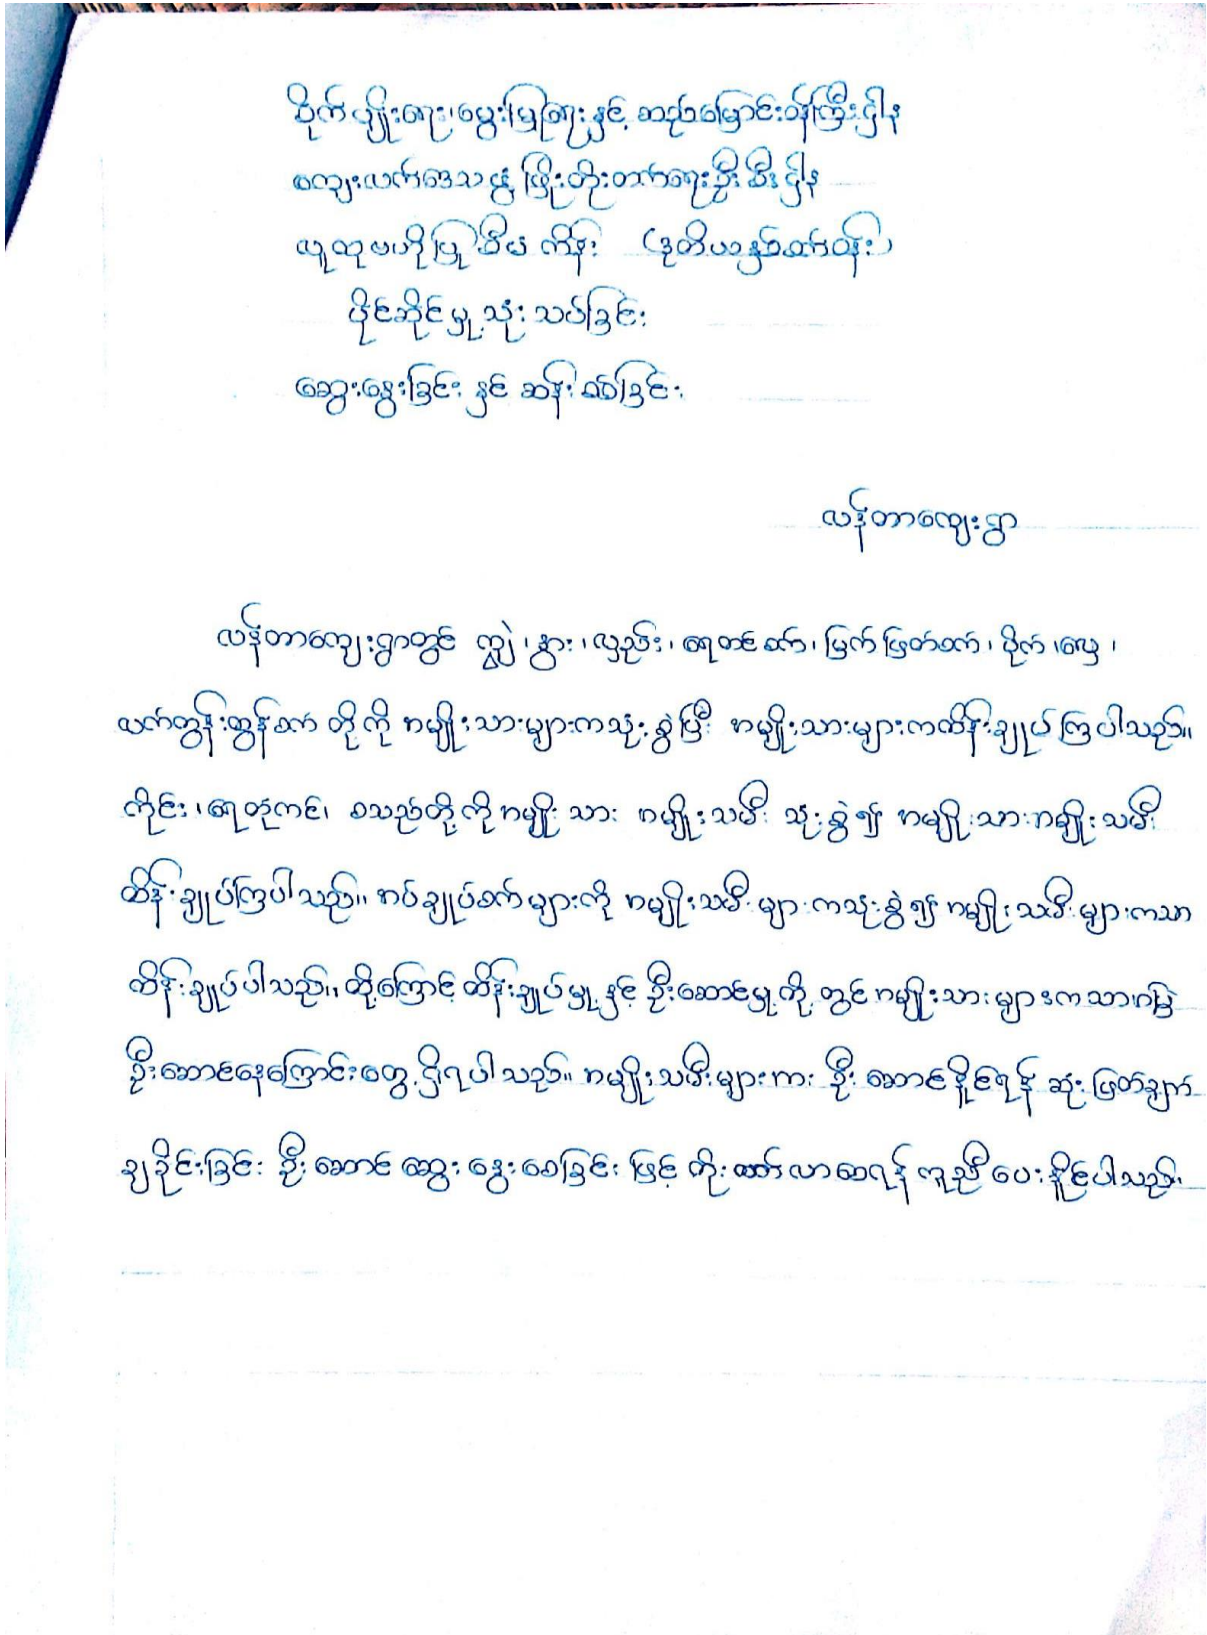 စိုက်ပျိုးရေး၊မွေးမြူရေးနှင့် ဆည်မြောင်းဝန်ကြီးဌာန
ကျေးလက်ဒေသဖွံ့ဖြိုးတိုးတက်ရေးဦးစီးဌာန
လူထုဗဟိုပြုစီမံကိန်း (ဒုတိယနှစ်ပတ်ဝန်း)
ပိုင်ဆိုင်မှု့သုံးသပ်ခြင်း
ဆွေးနွေးခြင်း နှင် ဆန်းစစ်ခြင်း
လန်တာကျေးရွာ
လန်တာကျေးရွာတွင် ကျွဲ၊နွား၊လှည်း၊ရေတင်စက်၊မြက်ဖြတ်စက်၊ပိုက်၊လှေ၊
လက်တွန်းထွန်စက် တို့ကို အမျိုးသားများကသုံးစွဲပြီး အမျိုးသားများကထိန်းချုပ်ကြပါသည်။
ကိုင်း၊ရေတုံကင်၊ စသည်တို့ကိုအမျိုးသား အမျိုးသမီး သုံးစွဲ၍ အမျိုးသားအမျိုးသမီး
ထိန်းချုပ်ကြပါသည်။ အပ်ချုပ်စက်များကို အမျိုးသမီးများကသုံးစွဲ၍ အမျိုးသမီးများကသာ
ထိန်းချုပ်ပါသည်။ ထို့ကြောင့် ထိန်းချုပ်မှု့နှင့် ဦးဆောင်မှု့ကို့တွင်အမျိုးသားများကသာအမြဲ
ဦးဆောင်နေကြောင်းတွေ့ရှိရပါသည်။ အမျိုးသမီးများကး ဦးဆောင်နိူင်ရန် ဆုံးဖြတ်ချက်
ချခိုင်းခြင်း ဦးဆောင် ဆွေးနွေးစေခြင်း ဖြင့် တိုးတက်လာစေရန် ကူညီပေးနိူင်ပါသည်။